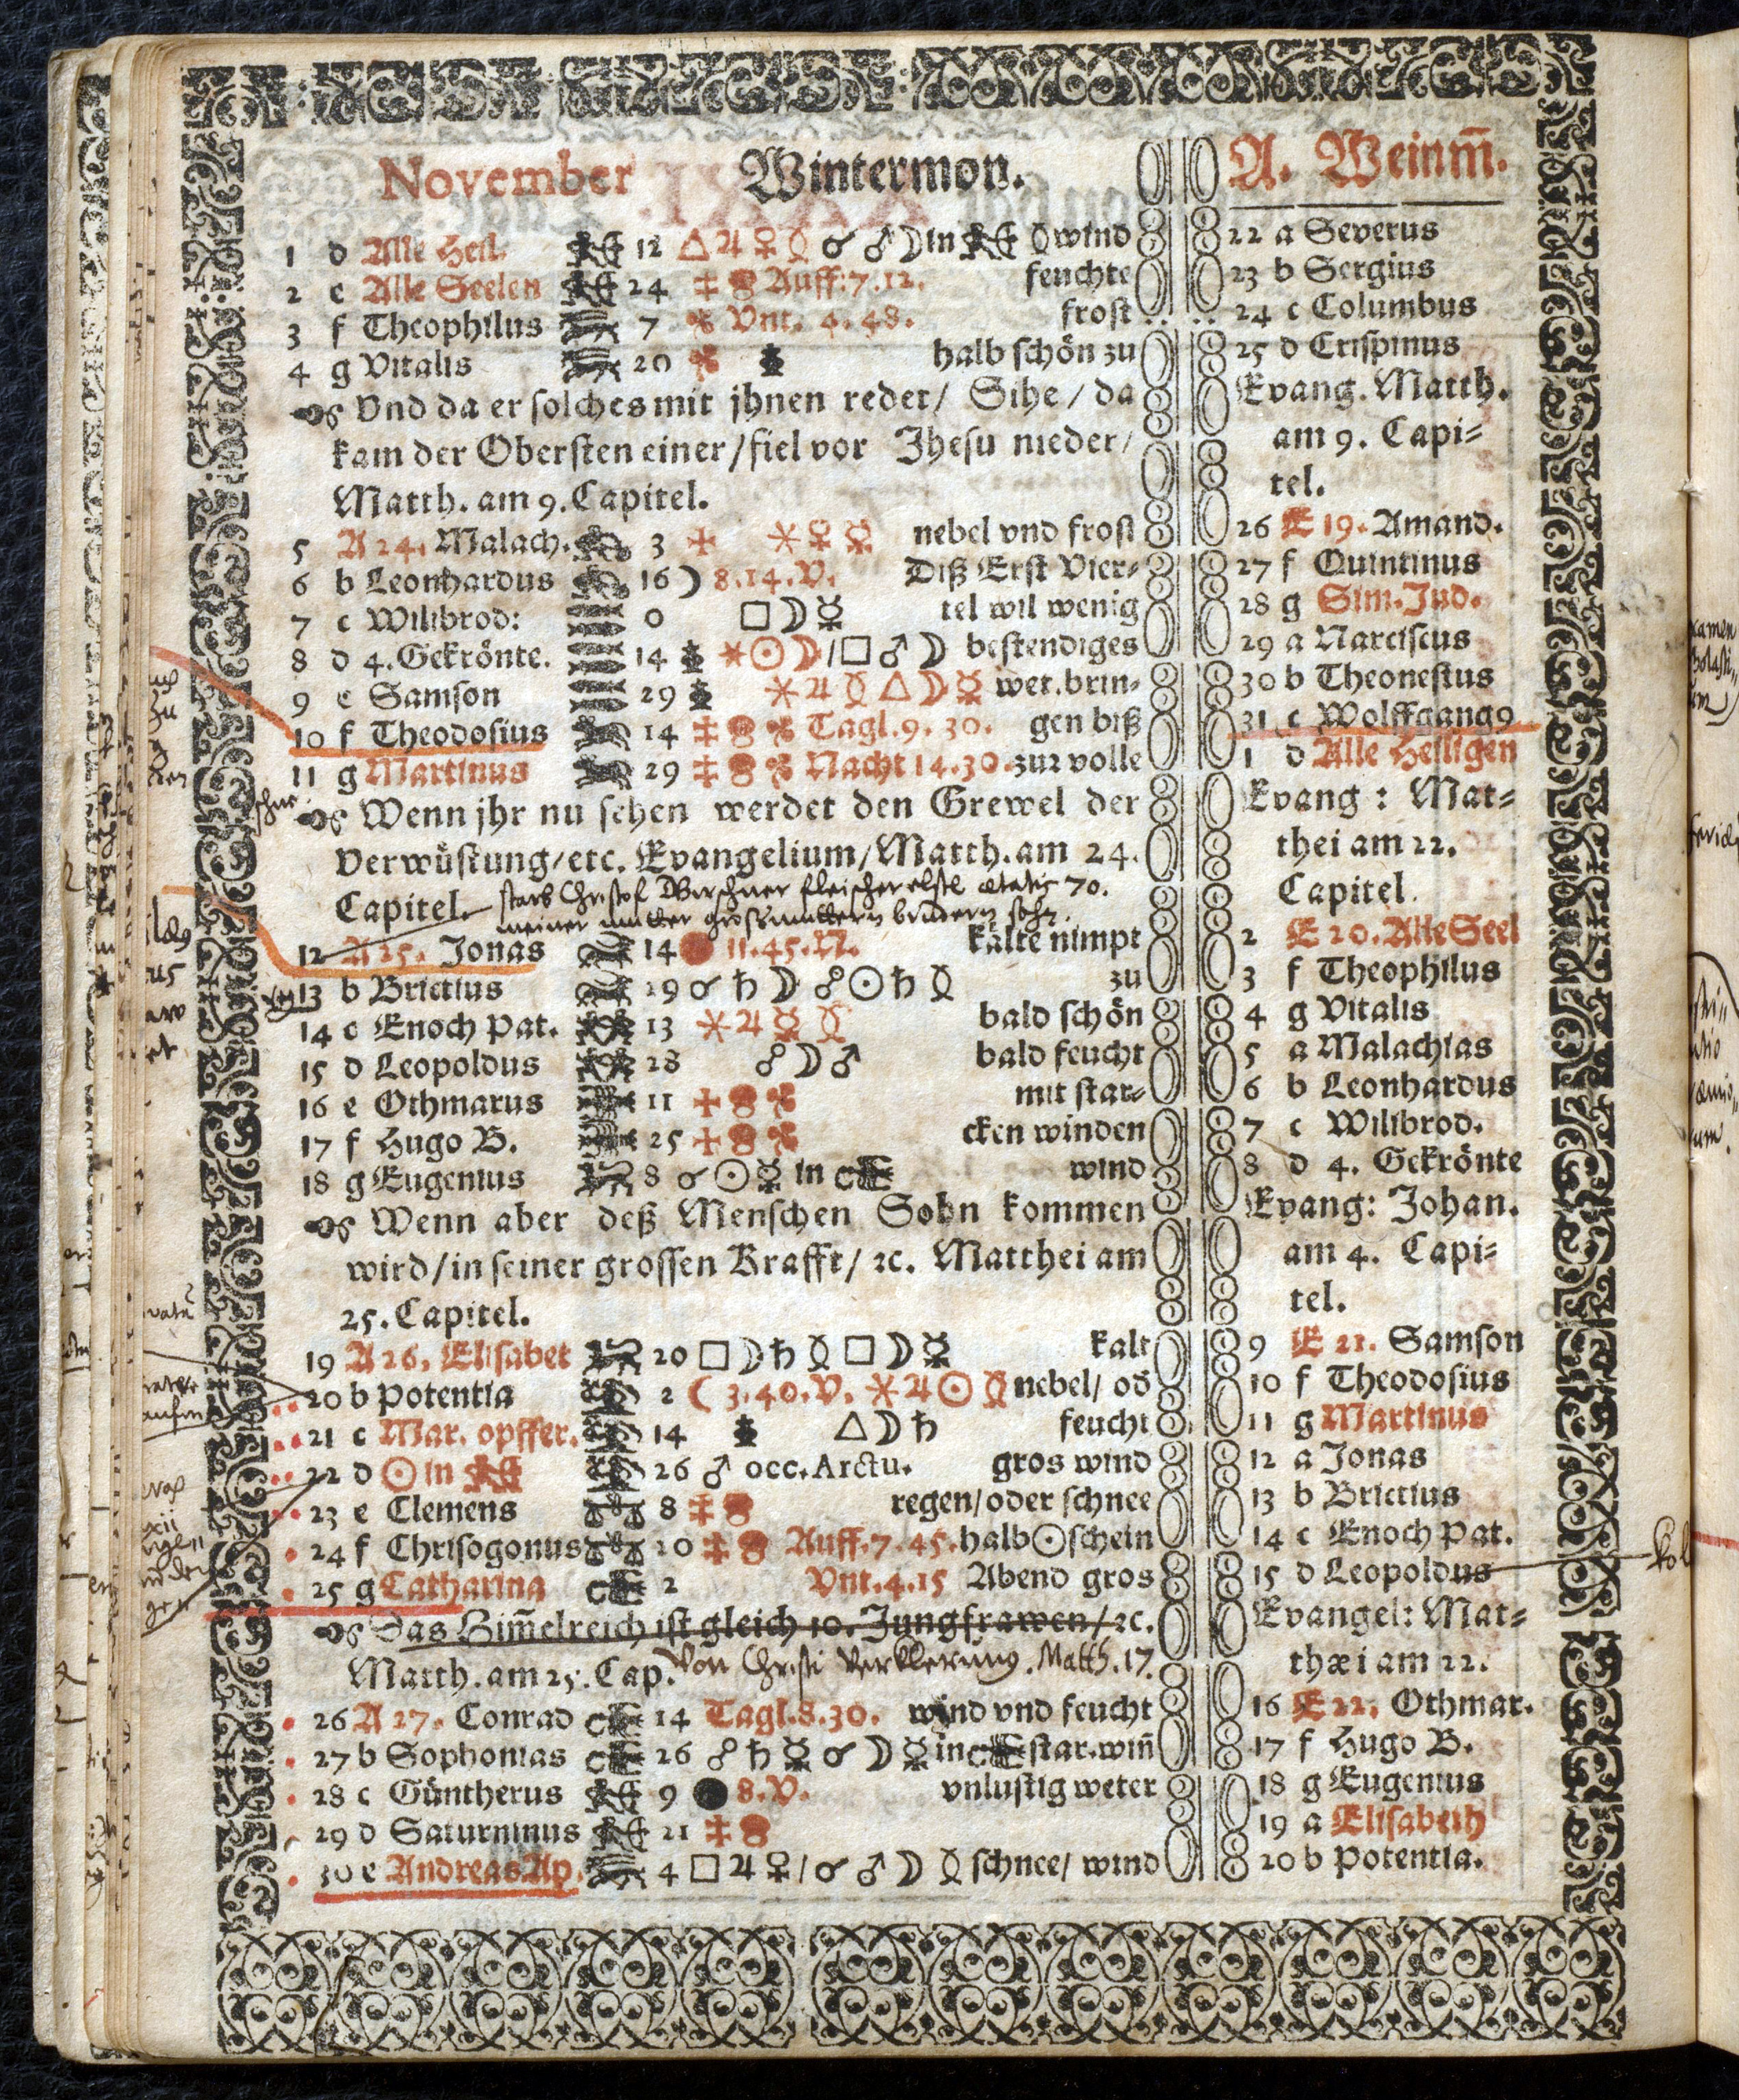 November Wintermon.
A. Weinm̄.
1 d Alle Heil. 12 △♃♀☿ ☌ ♂☽ in ☿ wind
2 e Alle Seelen 24 Auff: 7. 12. feuchte
3 f Theophilus 7 Vnt. 4. 48. frost
4 g Vitalis 20 halb schön zu
Vnd da er solches mit jhnen redet/ Sihe / da
kam der Obersten einer/fiel vor Jhesu nieder/
Matth. am 9. Capitel.
5 A 24. Malach. 3 ⚹♀☿ nebel vnd frost
6 b Leonhardus 16 ☽ 8.14.V. Diß Erst Vier⸗
7 c Wilibrod: 0 □☽☿ tel wil wenig
8 d 4. Gekrönte. 14 ⚹☉☽/□♂☽ bestendiges
9 e Samson 29 ⚹♃☿△☽☿ wet. brin⸗
10 f Theodosius 14 Tagl. 9. 30. gen biß
11 g Martinus 29 Nacht 14. 30. zur volle
Wenn jhr nu sehen werdet den Grewel der
Verwüstung/etc. Evangelium/Matth. am 24.
Capitel.
starb Christof fleischer ætatis 70.
meiner mutter grossmuttern brudern sohn.
12 A 25. Jonas 14 11. 45. N. kälte nimpt
13 b Brictius 19 ☌♄☽ ☍☉♄☿ zu
14 c Enoch Pat. 13 ⚹♃☿☿ bald schön
15 d Leopoldus 28 ☍☽♂ bald feucht
16 e Othmarus 11 mit star⸗
17 f Hugo B. 25 cken winden
18 g Eugenius 8 ☌☉☿ in wind
Wenn aber deß Menschen Sohn kommen
wird/in seiner grossen Krafft/ ꝛc. Matthei am
25. Capitel.
19 A 26. Elisabet 20 □☽♄☿□☽☿ kalt
20 b Potentia 2 ☾ 3. 40. V. ⚹♃☉☿ nebel/ od
21 c Mar. opffer. 14 △☽♄ feucht
22 d ☉ in 26 ♂ occ. Arctu. gros wind
23 e Clemens 8 regen/oder schnee
24 f Chrisogonus 20 Auff. 7. 45. halb☉schein
25 g Catharina 2 Vnt. 4. 15 Abend gros
Das Him̄elreich ist gleich 10. Jungfrawen/ ꝛc.
Matth. am 25. Cap.
Von Christi Verklerung. Matth. 17.
26 A 27. Conrad 14 Tagl. 8. 30. wind vnd feucht
27 b Sophonias 26 ☍♄☿☌☽☿ in star. win̄
28 c Güntherus 9 8. V. vnlustig weter
29 d Saturninus 21
30 e Andreas Ap. 4 □♃♀/☌♂☽☿ schnee/ wind
22 a Severus
23 b Sergius
24 c Columbus
25 d Crispinus
Evang. Matth.
am 9. Capi⸗
tel.
26 E 19. Amand.
27 f Quintinus
28 g Sim. Jud.
29 a Narciscus
30 b Theonestus
31 c Wolffgang9
1 d Alle Heiligen
Evang : Mat⸗
thei am 22.
Capitel.
2 E 20. Alle Seel
3 f Theophilus
4 g Vitalis
5 a Malachias
6 b Leonhardus
7 c Wilibrod.
8 d 4. Gekrönte
Evang: Johan.
am 4. Capi⸗
tel.
9 E 21. Samson
10 f Theodosius
11 g Martinus
12 a Jonas
13 b Brictius
14 c Enoch Pat.
15 d Leopoldus
Evangel: Mat⸗
thæi am 22.
16 E 22. Othmar.
17 f Hugo B.
18 g Eugenius
19 a Elisabeth
20 b Potentia.